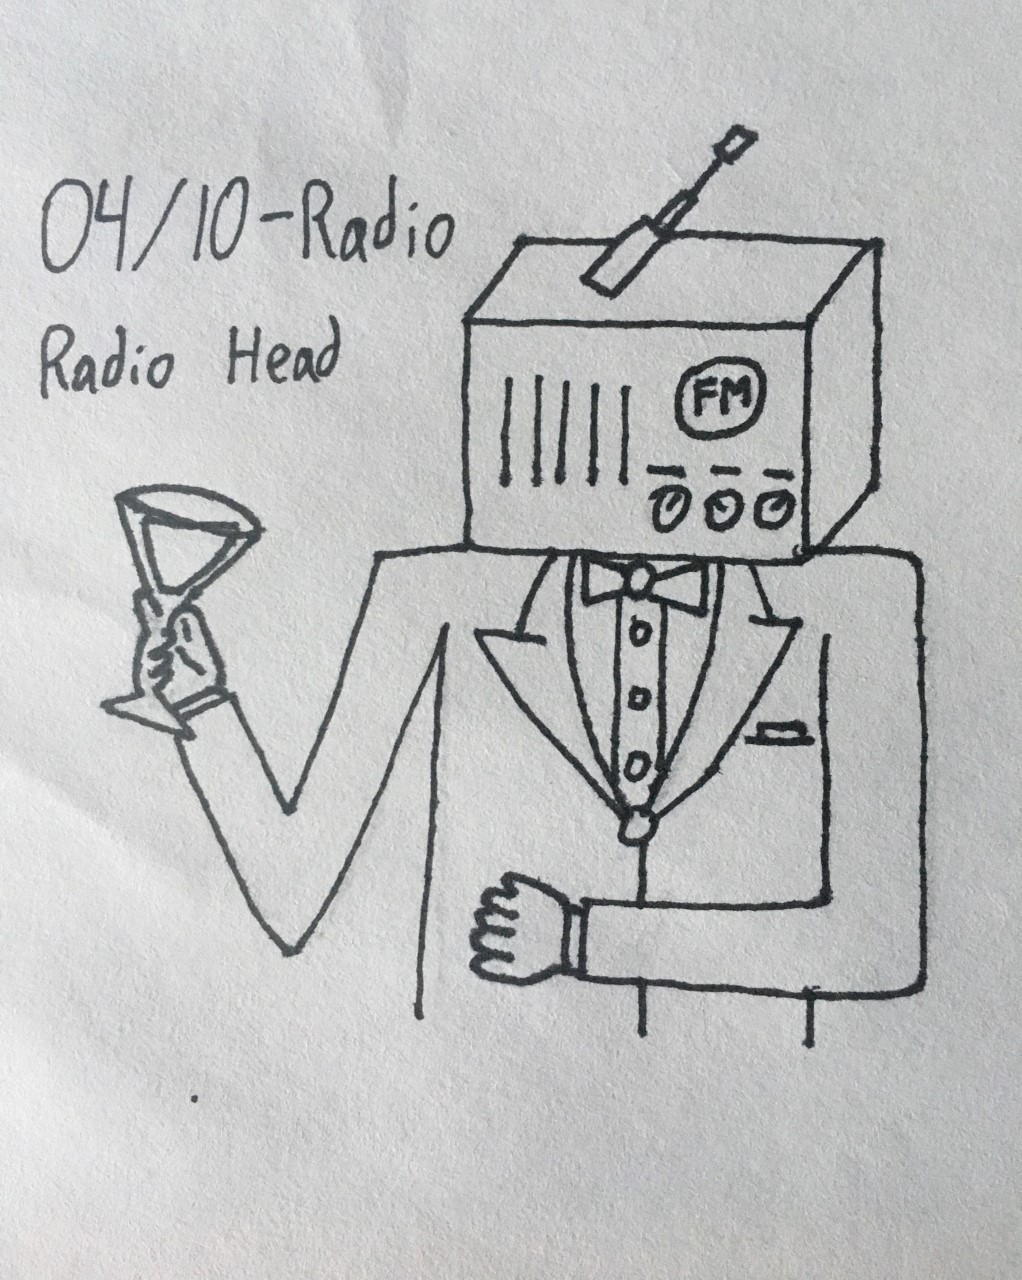 04/10-Radio
Radio Head
FM